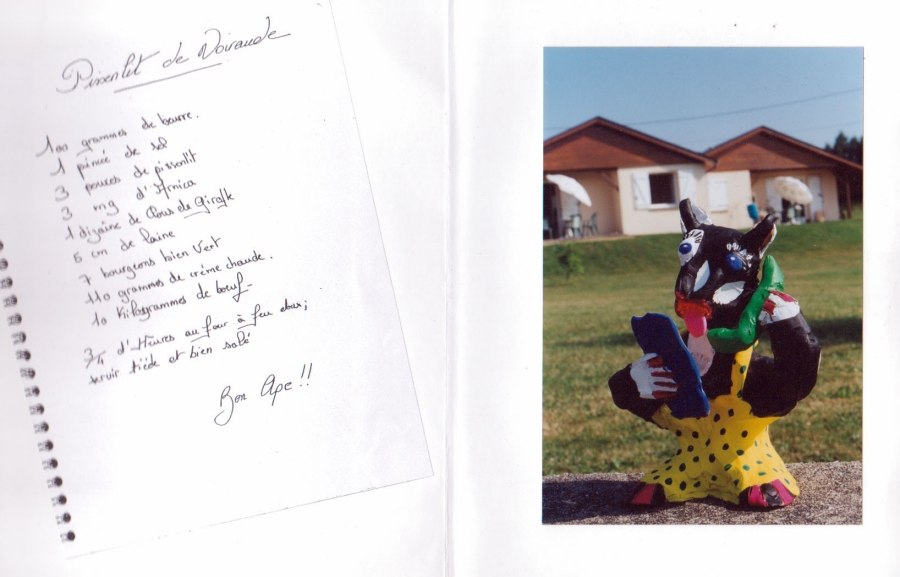 Pissenlit de Noiraude
100 grammes de beurre.
1 pincé de sel
3 pouces de pissenlit
3 mg d'Arnica
1 dizaine de Clous de Girofle
5 cm de laine
7 bourgeons bien Vert
110 grammes de crème chaude.
10 Kilogrammes de bœuf
3/4 d'Heures au four à feu doux;
servir tiède et bien salé
Bon Ape!!